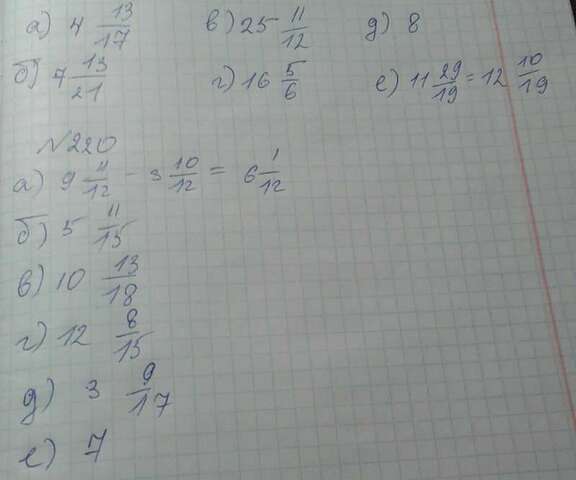 а) 4 13/17 в) 25 11/12 д) 8
б) 7 13/21 г) 16 5/6 е) 11 29/19 = 12 10/19
№220
а) 9 11/12 - 3 10/12 = 6 1/12
б) 5 11/15
в) 10 13/18
г) 12 8/15
д) 3 9/17
е) 7